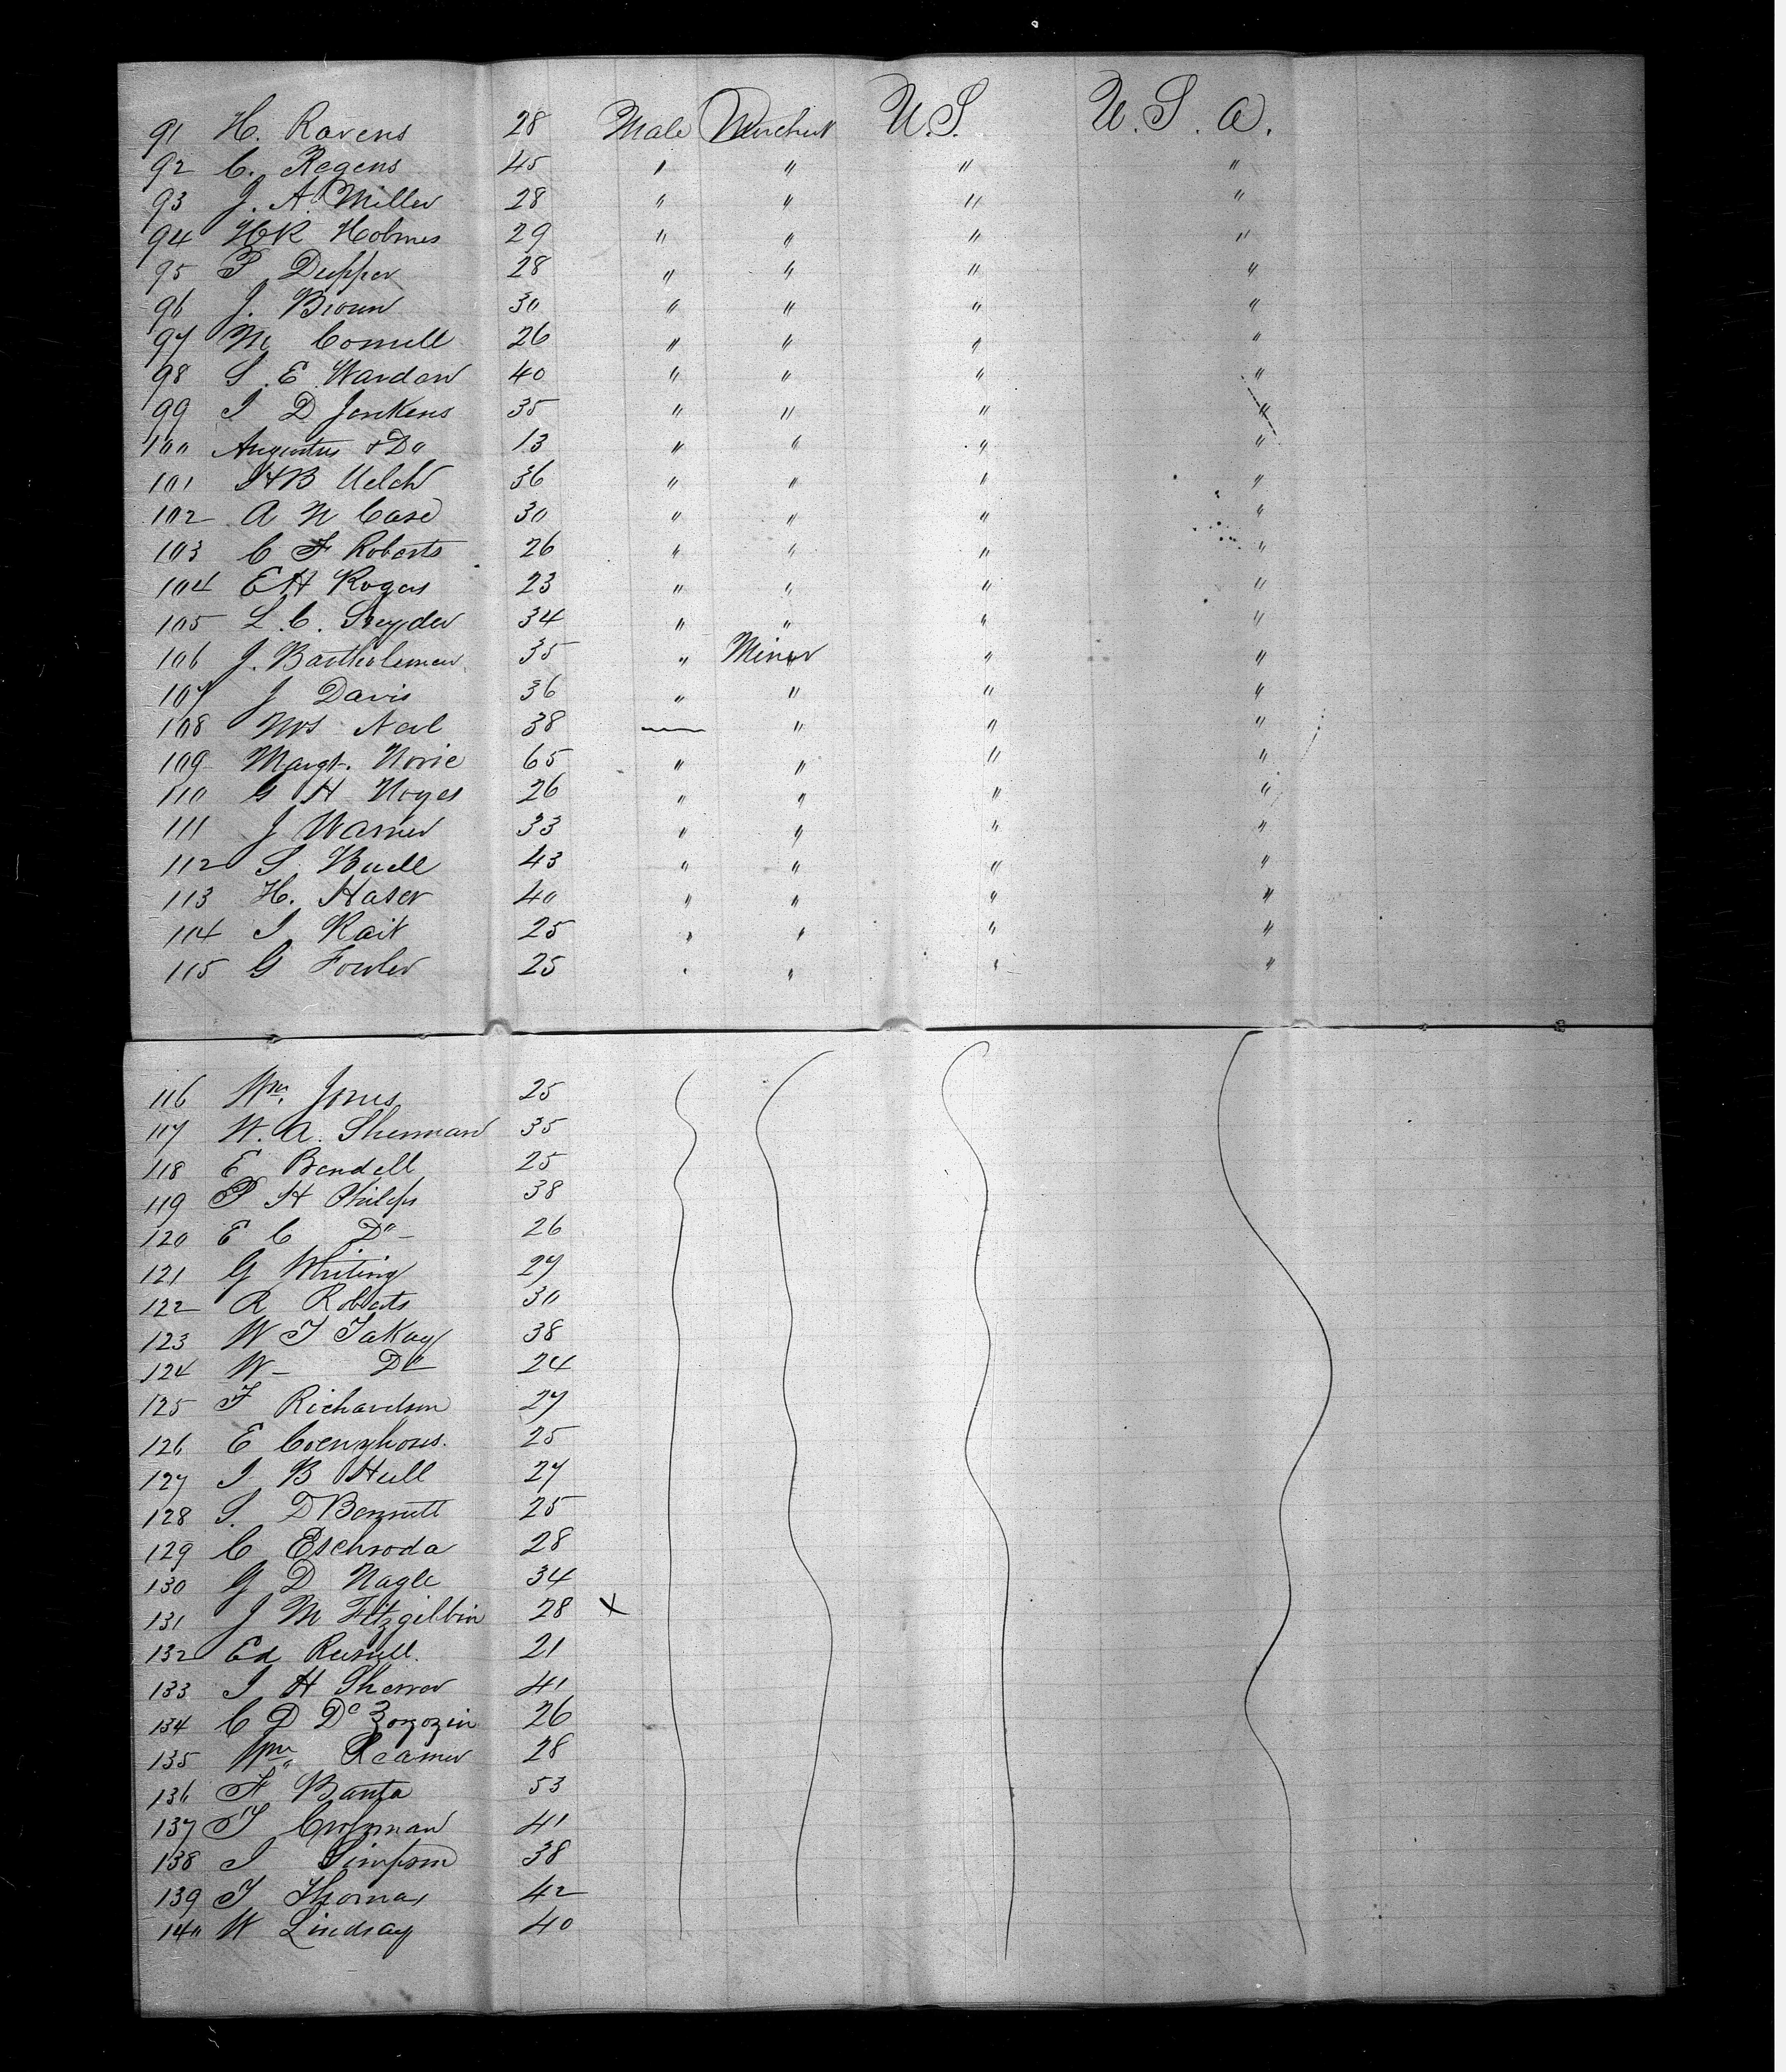 91 H. Ravens 28 Male Merchant U.S. U.S.A.
92 C. Regens 45 " " " "
93 J. A. Miller 28 " " " "
94 HR Holmes 29 " " " "
95 P Dupper 28 " " " "
96 J. Broun 30 " " " "
97 M Cornell 26 " " " "
98 S. E. Warden 40 " " " "
99 I D Jenkens 35 " " " "
100 Augustus + Do 13 " " " "
101 HB Uelch 36 " " " "
102 A N Case 30 " " " "
103 C F Roberts 26 " " " "
104 E H Rogers 23 " " " "
105 L. C. Sneyder 34 " " " "
106 J. Bartholemew 35 " Miner " "
107 J Davis 36 " " " "
108 Mrs Neal 38 — " " "
109 Margt. Norie 65 " " " "
110 G H Noyes 26 " " " "
111 J Warner 33 " " " "
112 S. Buell 43 " " " "
113 H. Haser 40 " " " "
114 I Rait 25 " " " "
115 G Fowler 25 " " " "
116 Wm. Jones 25
117 W. A. Sherman 35
118 E Bendell 25
119 P H Philips 38
120 E C Do 26
121 G Whiting 27
122 R Roberts 30
123 W T Takay 38
124 W - Do 24
125 F Richardson 27
126 E 25
127 I B Hull 27
128 S. D Bennett 25
129 C Eschroda 28
130 G D Nagle 34
131 J M Fitzgibbin 28 X
132 Ed Russell. 21
133 I H 41
134 C D De 26
135 Wm Reamer 28
136 F Banta 53
137 T 41
138 I Simpson 38
139 T Thomas 42
140 W Lindsay 40